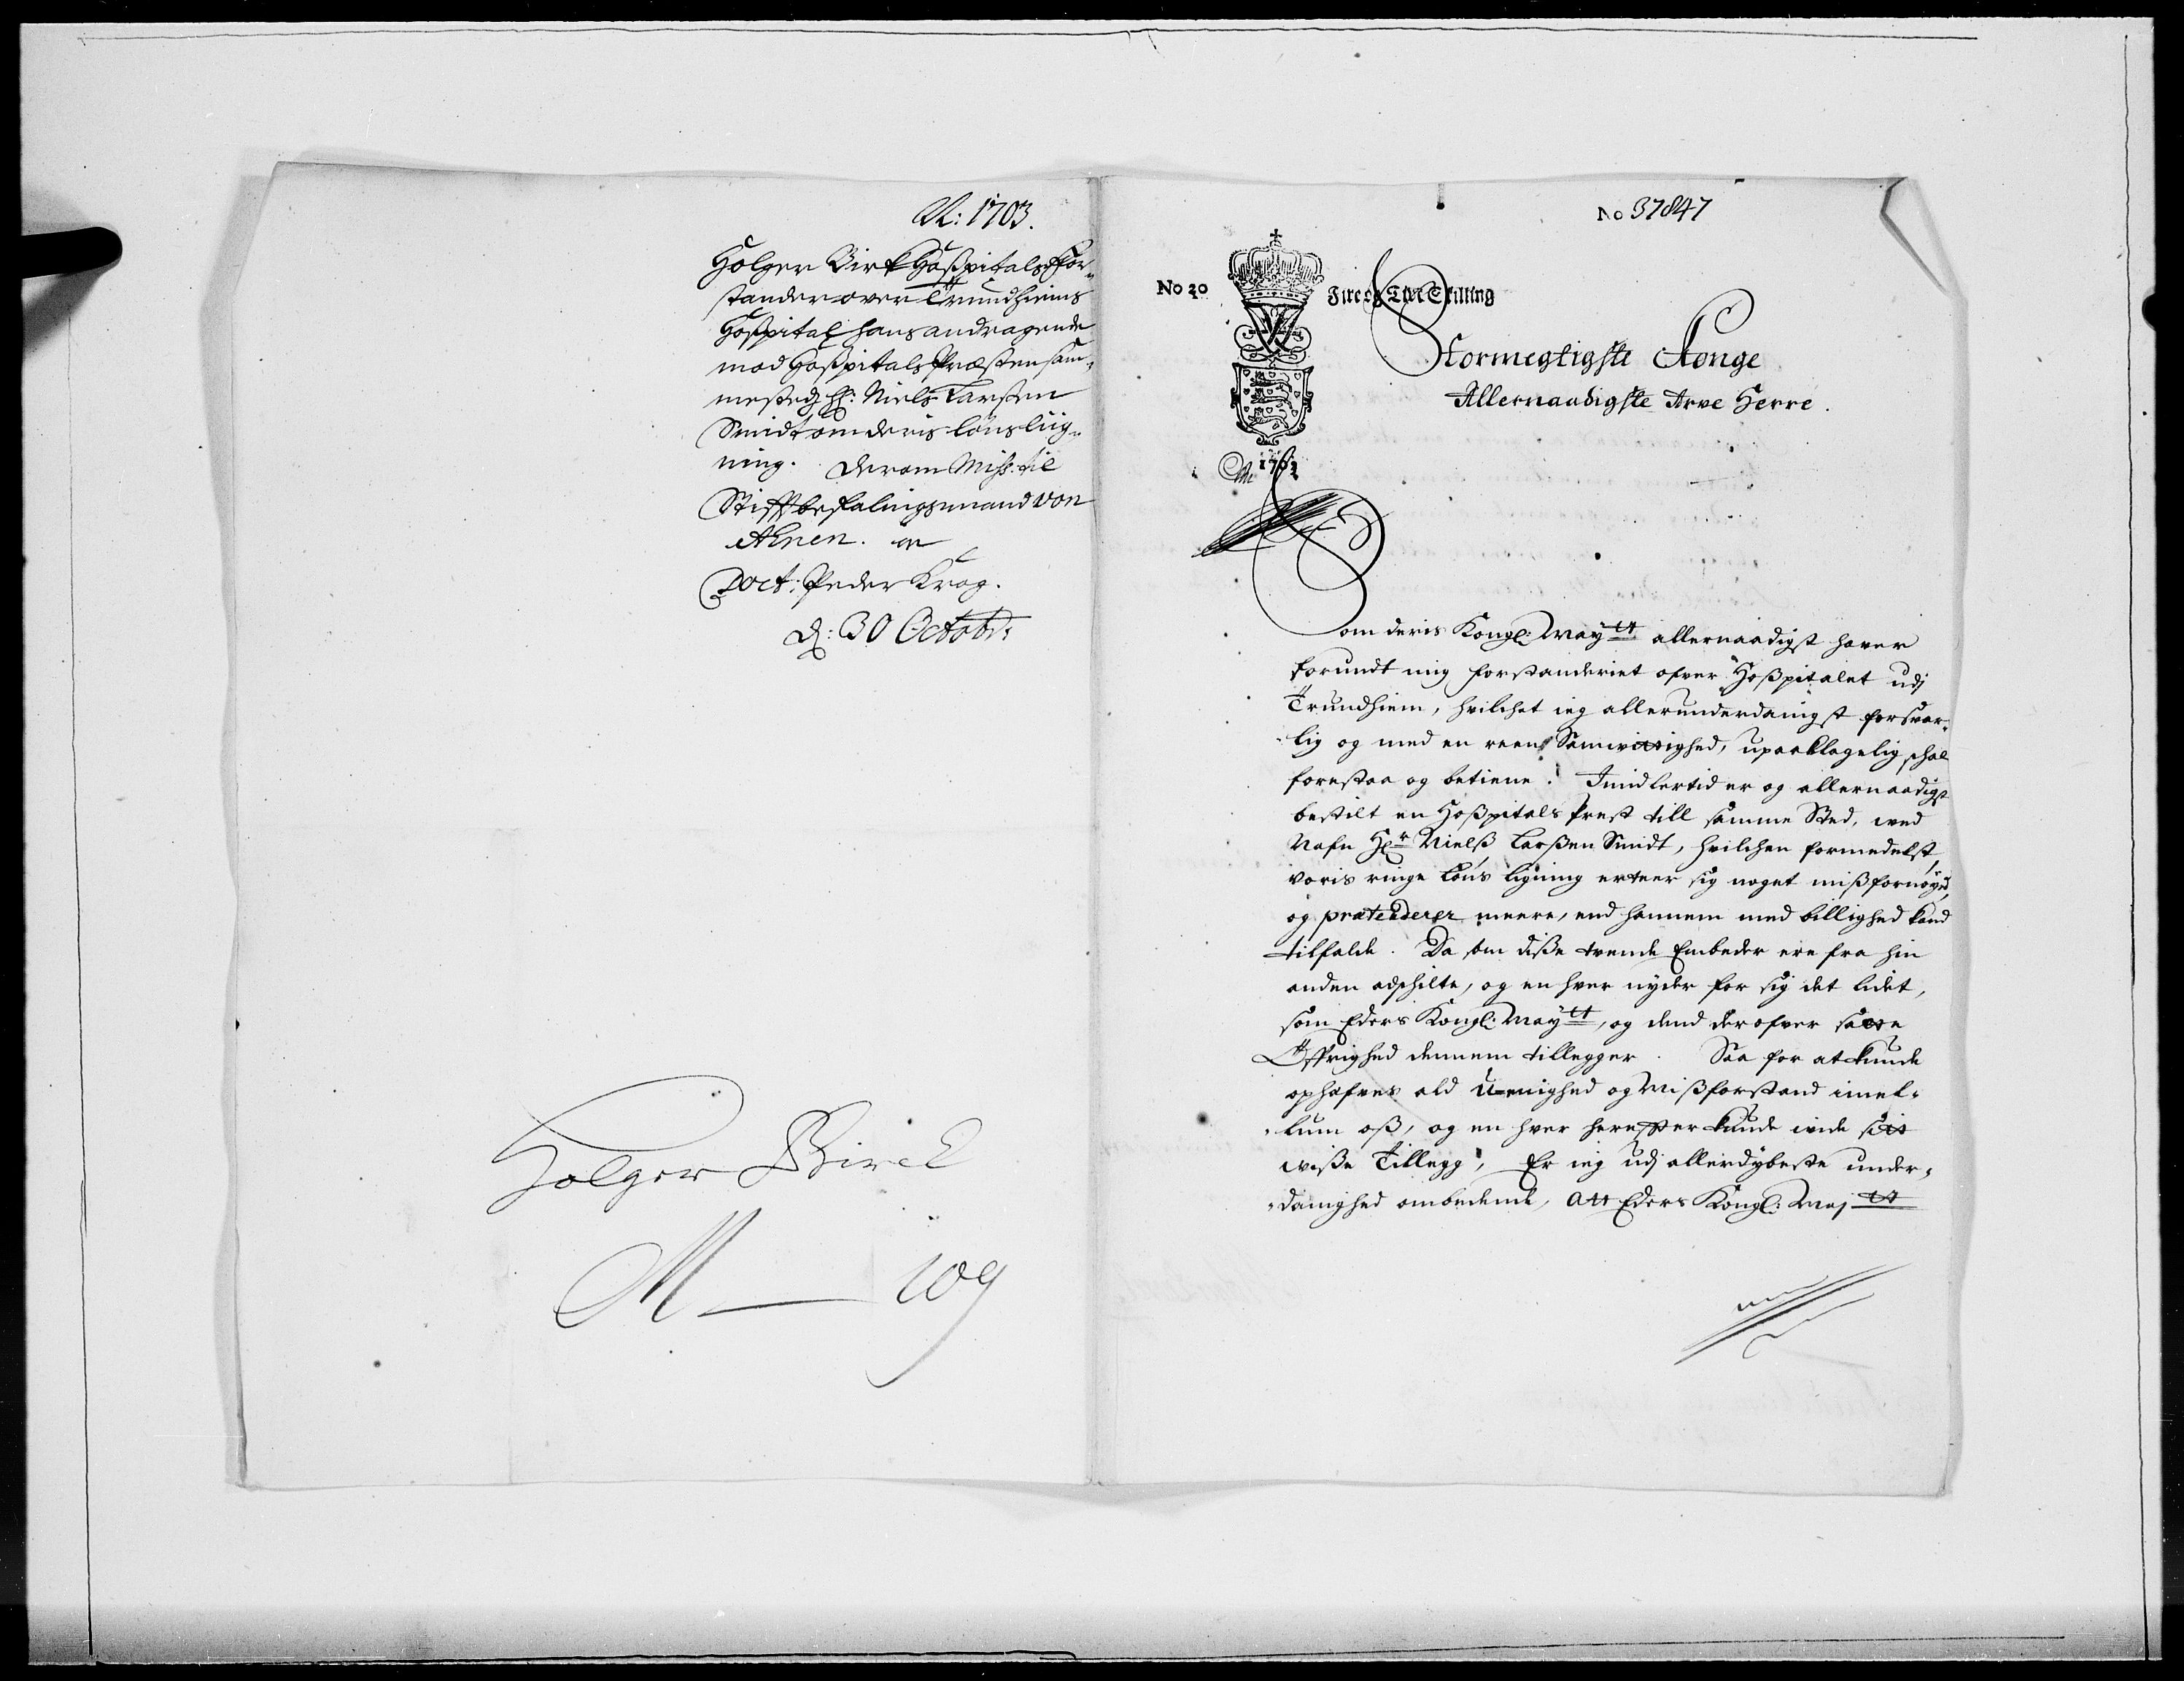 A: 1703.
Holger Birk Hoßpitals For-
stander over Trundhiems
Hoßpital hans andragende
mod Hoßpitals Præsten sam-
mested Hr: Niels Larsen
Smidt om deris løns lig-
ning. Derom Miss: til
Stiftbefalingsmand von
Ahnen. og
Doct: Peder Krog.
d: 30 Octobr:
Holger Birck
M — 109
No 37847
No 20 Fire og Tive Skilling
Stormegtigste Konge
Allernaadigste Arve Herre.
1703
Som deris Kongl: Maytt allernaadigst hafver
forundt mig forstanderiet ofver Hoßpitalet udj
Trundhiem, hvilchet ieg allerunderdanigst forsvar-
lig og med en reen Samvittighed, upaaklagelig schal
forestaa og betiene. Imidlertid er og allernaadigst
bestilt en Hoßpitals Prest till samme Sted, ved
Nafn Hr Nielß Larßen Smidt, hvilchen formedelst
voris ringe løns ligning erteer sig noget mißfornøyed,
og prætenderer meere, end hannem med billighed kand
tilfalde. Da som diße tvende Embeder ere fra hin
anden adschilte, og en hver nyder for sig det lidet,
som Eders Kongl: Maytt, og dend derofver satte
Øfrighed dennem tillegger. Saa for at kunde
ophæfves ald U-enighed og Mißforstand imel-
lum oß, og en hver hereffter kunde vide sit
viße Tillegg, Er ieg udj allerdybeste under-
danighed ombedende, Att Eders Kongl: Majtt